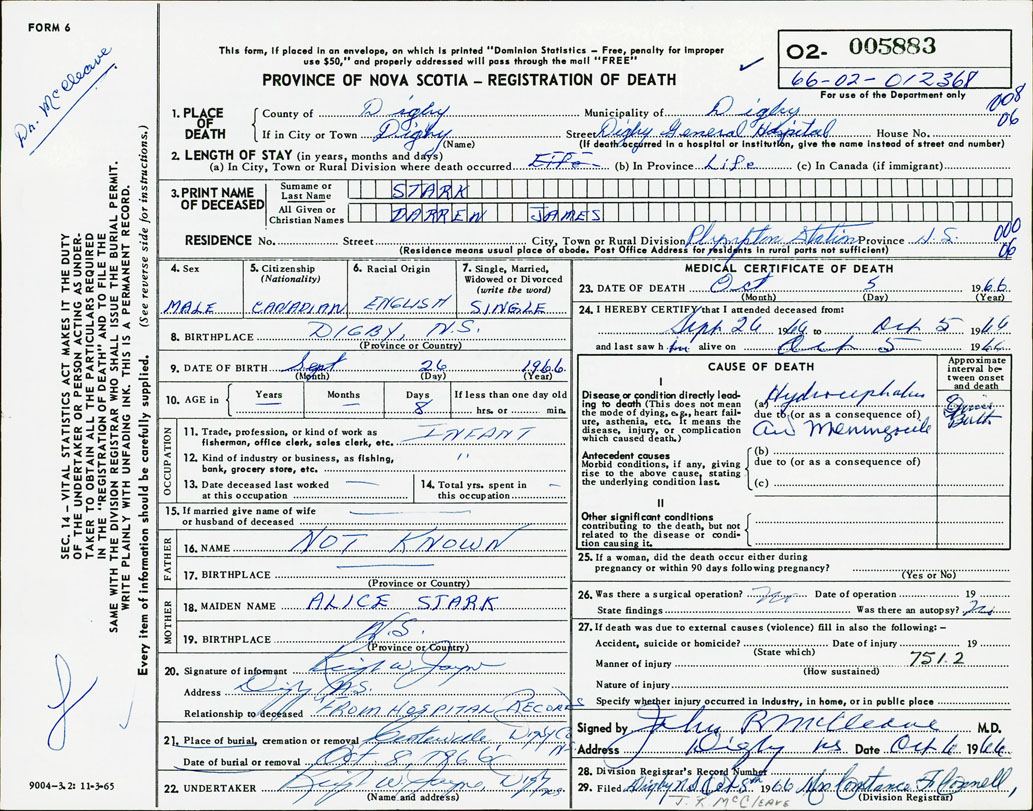 FORM 6
Dr. McCleave
This form, if placed in an envelope, on which is printed "Dominion Statistics – Free, penalty for improper
use $50," and properly addressed will pass through the mail "FREE"
PROVINCE OF NOVA SCOTIA – REGISTRATION OF DEATH
02- 005883
66-02-012368
For use of the Department only
008
06
1. PLACE OF DEATH
County of Digby Municipality of Digby
If in City or Town Digby Street Digby General Hospital House No.
(Name) (If death occurred in a hospital or institution, give the name instead of street and number)
2. LENGTH OF STAY (in years, months and days)
(a) In City, Town or Rural Division where death occurred Life (b) In Province Life (c) In Canada (if immigrant)
3. PRINT NAME OF DECEASED
Surname or Last Name STARK
All Given or Christian Names DARREN JAMES
RESIDENCE No. Street City, Town or Rural Division Plympton Station Province N.S.
(Residence means usual place of abode. Post Office Address for residents in rural parts not sufficient)
000
06
4. Sex 5. Citizenship (Nationality) 6. Racial Origin 7. Single, Married, Widowed or Divorced (write the word)
MALE CANADIAN ENGLISH SINGLE
8. BIRTHPLACE DIGBY, N.S.
(Province or Country)
9. DATE OF BIRTH Sept 26 1966
(Month) (Day) (Year)
10. AGE in Years Months Days If less than one day old
8 hrs. or min.
OCCUPATION
11. Trade, profession, or kind of work as
fisherman, office clerk, sales clerk, etc. INFANT
12. Kind of industry or business, as fishing,
bank, grocery store, etc. "
13. Date deceased last worked
at this occupation —
14. Total yrs. spent in
this occupation –
15. If married give name of wife
or husband of deceased
FATHER
16. NAME NOT KNOWN
17. BIRTHPLACE
(Province or Country)
MOTHER
18. MAIDEN NAME ALICE STARK
19. BIRTHPLACE N.S.
(Province or Country)
20. Signature of informant
Address Digby N.S.
Relationship to deceased FROM HOSPITAL RECORDS
21. Place of burial, cremation or removal Digby Co NS
Date of burial or removal Oct 8, 1966
22. UNDERTAKER Digby
(Name and address)
MEDICAL CERTIFICATE OF DEATH
23. DATE OF DEATH Oct 5 1966
(Month) (Day) (Year)
24. I HEREBY CERTIFY that I attended deceased from:
Sept 26 1966 to Oct 5 1966
and last saw him alive on Oct 5 1966
CAUSE OF DEATH
Approximate interval between onset and death
I
Disease or condition directly leading to death (This does not mean the mode of dying, e.g., heart failure, asthenia, etc. It means the disease, injury, or complication which caused death.)
(a) Hydrocephalus
due to (or as a consequence of)
Meningocele
Birth
Antecedent causes
Morbid conditions, if any, giving rise to the above cause, stating the underlying condition last.
(b)
due to (or as a consequence of)
(c)
II
Other significant conditions
contributing to the death, but not related to the disease or condition causing it.
25. If a woman, did the death occur either during
pregnancy or within 90 days following pregnancy?
(Yes or No)
26. Was there a surgical operation? no Date of operation 19
State findings Was there an autopsy? No
27. If death was due to external causes (violence) fill in also the following: –
Accident, suicide or homicide? Date of injury 19
(State which)
Manner of injury 751.2
(How sustained)
Nature of injury
Specify whether injury occurred in industry, in home, or in public place
Signed by John R McCleave M.D.
Address Digby NS Date Oct 6 1966
28. Division Registrar's Record Number
29. Filed Digby N.S. Oct 8th 1966 Mrs Constance F Connell,
J. R. McCLEAVE (Division Registrar)
SEC. 14 – VITAL STATISTICS ACT MAKES IT THE DUTY
OF THE UNDERTAKER OR PERSON ACTING AS UNDER-
TAKER TO OBTAIN ALL THE PARTICULARS REQUIRED
IN THE "REGISTRATION OF DEATH" AND TO FILE THE
SAME WITH THE DIVISION REGISTRAR WHO SHALL ISSUE THE BURIAL PERMIT.
WRITE PLAINLY WITH UNFADING INK. THIS IS A PERMANENT RECORD.
Every item of information should be carefully supplied. (See reverse side for instructions.)
9004-3.2: 11-3-65